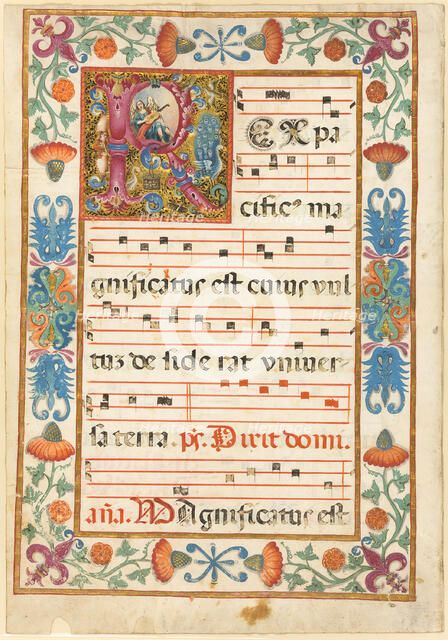 R EX pa
cific⁹ ma
gnificatus est cuius vul
tuz de side rat vniuer
sa terra. ps. Dixit domi.
aña. MAgnificatus est
Heritage